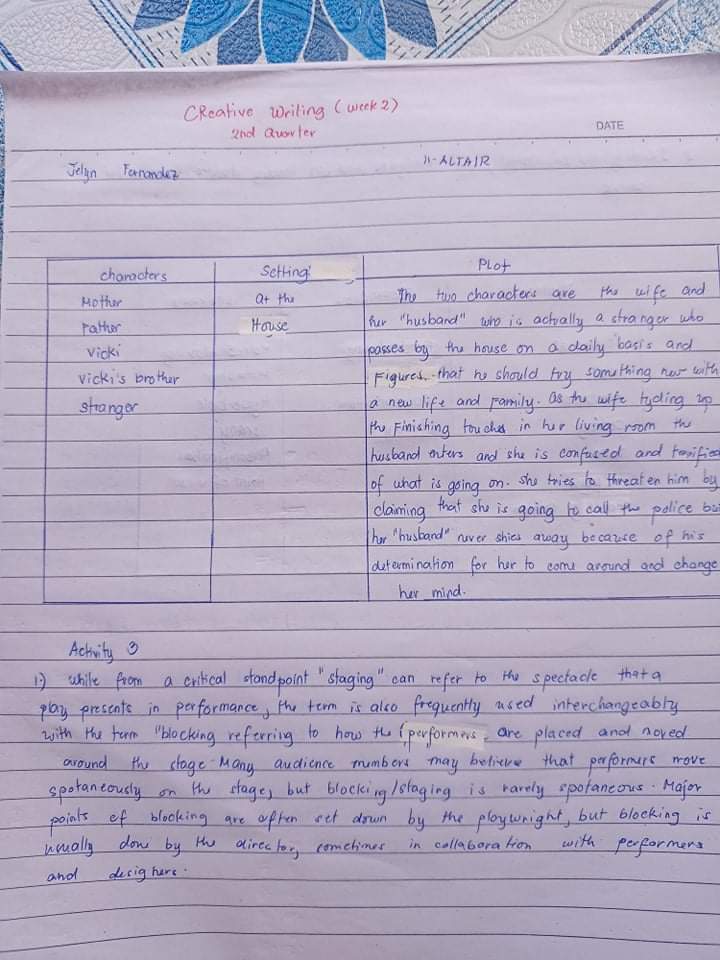 CReative Writing (week 2)
2nd Quarter
DATE
Jelyn Fernandez
11-ALTAIR
characters
Mother
Father
Vicki
Vicki's brother
stranger
Setting:
at the
House
Plot
The two characters are the wife and
her "husband" who is actually a stranger who
passes by the house on a daily basis and
Figures that he should try something new with
a new life and family. as the wife tyding up
the Finishing touches in her living room the
husband enters and she is confused and terrified
of what is going on. she tries to threaten him by
claiming that she is going to call the police but
her "husband" never shies away because of his
determination for her to come around and change
her mind.
Activity 3
1.) while from a critical standpoint "staging" can refer to the spectacle that a
play presents in performance, the term is also frequently used interchangeably
with the term "blocking referring to how the performers are placed and moved
around the stage. Many audience numbers may believe that performers move
spotaneously on the stage, but blocking/staging is rarely spotaneous. Major
points of blocking are often set down by the playwright, but blocking is
usually done by the director, sometimes in collaboration with performers
and designers.